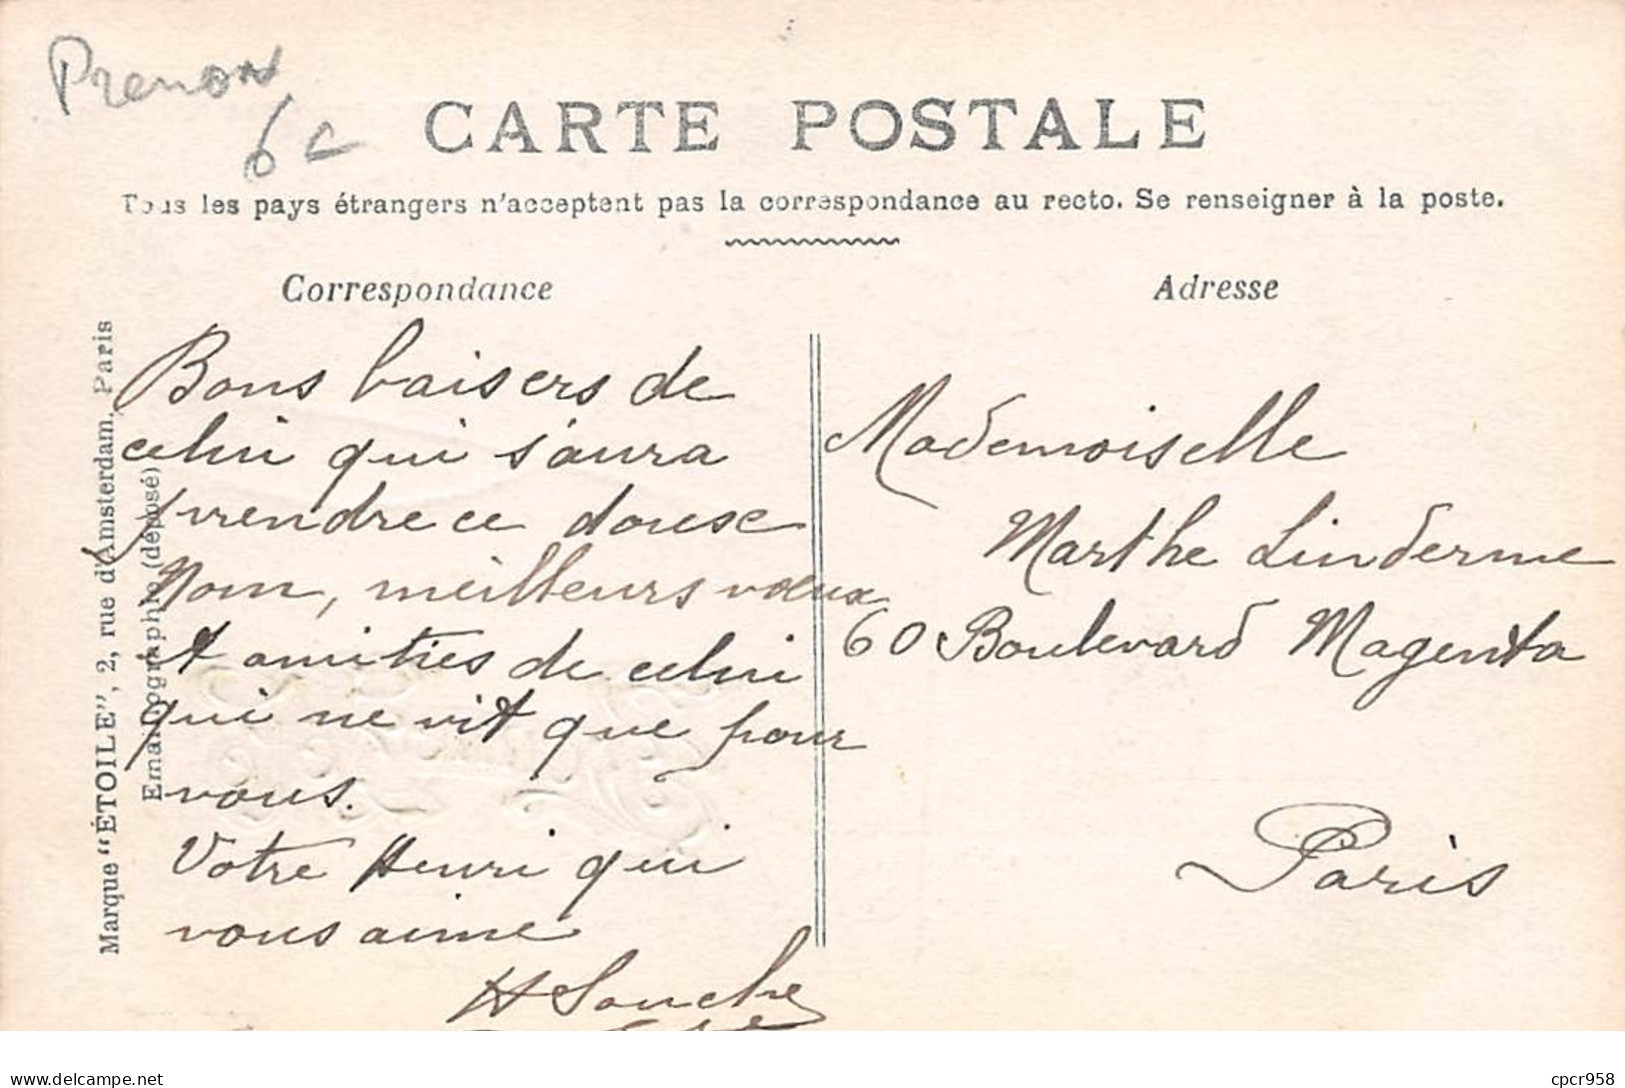 Prenom
6 c
CARTE POSTALE
Tous les pays étrangers n'acceptent pas la correspondance au recto. Se renseigner à la poste.
Correspondance
Bons baisers de
celui qui s'aura
prendre ce douse
Nom, meilleurs voeux
et amitiés de celui
qui ne vit que pour
vous.
Votre Henri qui
vous aime
H Souche
Adresse
Mademoiselle
Marthe Linderme
60 Boulevard Magenta
Paris
Marque "ÉTOILE", 2, rue d'Amsterdam, Paris
Emaillographie (déposé)
delcampe.net
cpcr958